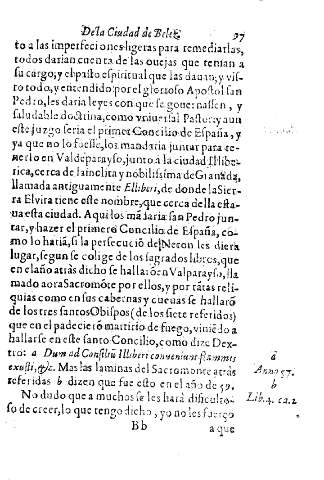 De la Ciudad de Beleẽ. 97
to a las imperfeciones ligeras para remediarlas,
todos darian cuenta de las ouejas que tenian a
su cargo, y el pasto espiritual que las dauan, y vis-
to todo, y entendido por el glorioso Apostol san
Pedro, les daria leyes con que se gouernassen, y
saludable doctrina, como vniuersal Pastor, y aun
este juzgo seria el primer Concilio de España, y
ya que no lo fuesse, los mandaria juntar para te-
nerlo en Valdeparayso, junto a la ciudad Illibe-
rica, cerca de la inclita y nobilissima de Granada,
llamada antiguamente Elliberi, de donde la Sier-
ra Elvira tiene este nombre, que cerca della esta-
ua esta ciudad. Aqui los mãdaria san Pedro jun-
tar, y hazer el primero Concilio de España, co-
mo lo hariã, si la persecució del Neron les diera
lugar, segun se colige de los sagrados libros, que
en el año atràs dicho se hallarō en Valparayso, lla
mado aora Sacromōte por ellos, y por tãtas reli-
quias como en sus cabernas y cueuas se hallarō
de los tres santos Obispos (de los siete referidos)
que en el padecierō martirio de fuego, viniēdo a
hallarse en este santo Concilio, como dize Dex-
tro: a Dum ad Consiliũ Illiberi conveniunt flammis
exusti, &c. Mas las laminas del Sacromonte atràs
referidas b dizen que fue esto en el año de 59.
No dudo que a muchos se les harà dificulto-
so de creer, lo que tengo dicho, yo no les fuerço
Bb a que
a
Anno 57.
b
Lib. 4. ca. 2